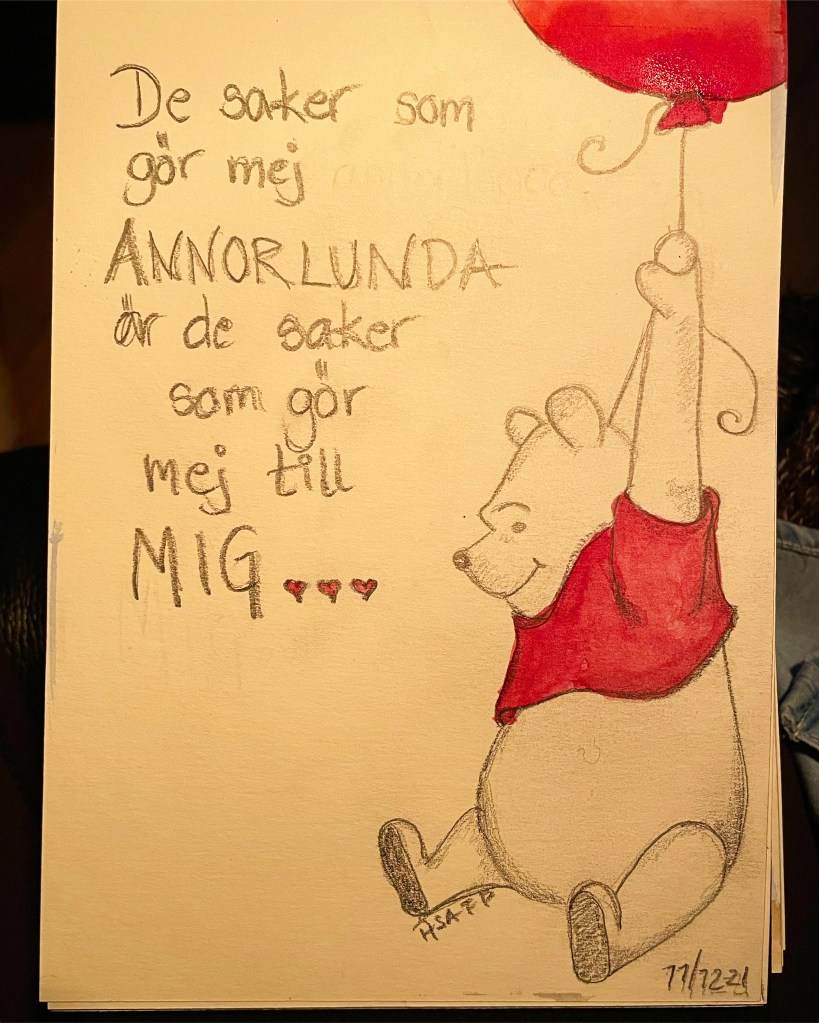 De saker som
gör mej
ANNORLUNDA
är de saker
som gör
mej till
MIG...
ÅSA
11/12-21